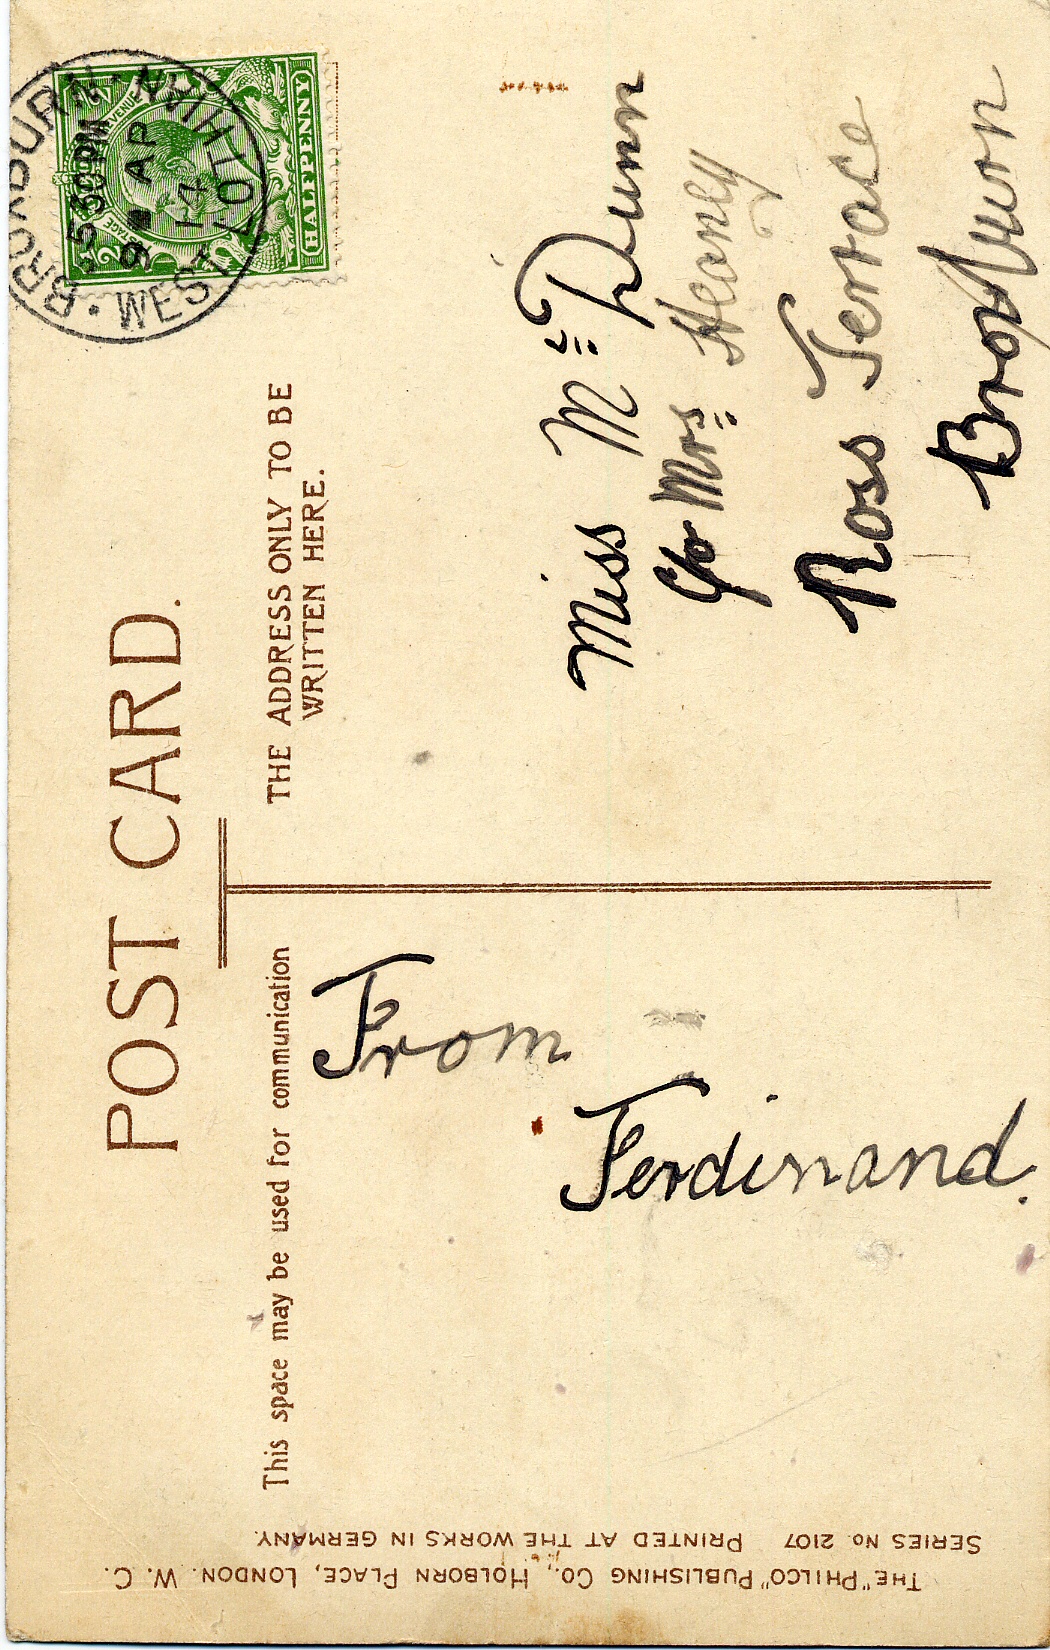 POST CARD.
THE ADDRESS ONLY TO BE
WRITTEN HERE.
This space may be used for communication
From
Ferdinand.
Miss Mc Dunn
c/o Mrs Heaney
Ross Terrace
Broxburn
BROXBURN · WEST LOTHIAN ·
5 30 PM
9 AP
14
POSTAGE REVENUE
HALFPENNY
THE "PHILCO" PUBLISHING CO., HOLBORN PLACE, LONDON. W. C.
SERIES No 2107 PRINTED AT THE WORKS IN GERMANY.